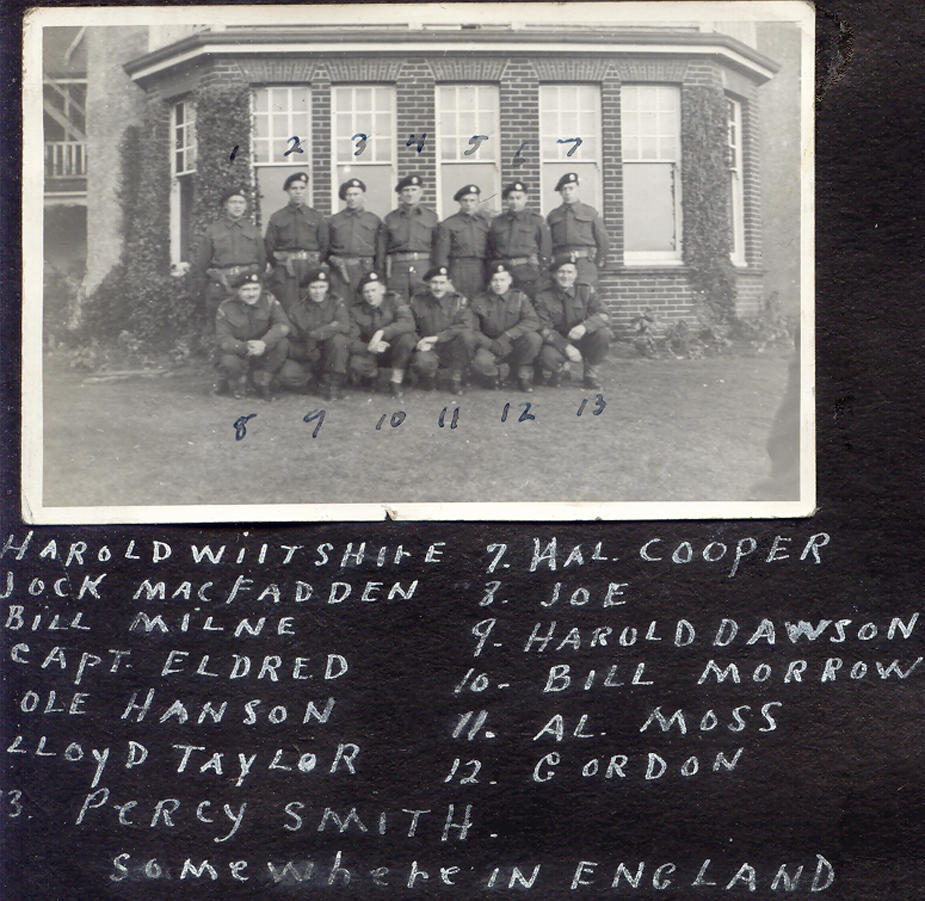 1 2 3 4 5 6 7
8 9 10 11 12 13
HAROLD WILTSHIRE 7. HAL. COOPER
JOCK MACFADDEN 8. JOE
BILL MILNE 9. HAROLD DAWSON
CAPT. ELDRED 10. BILL MORROW
OLE HANSON 11. AL. MOSS
LLOYD TAYLOR 12. GORDON
13. PERCY SMITH.
SOMEWHERE IN ENGLAND